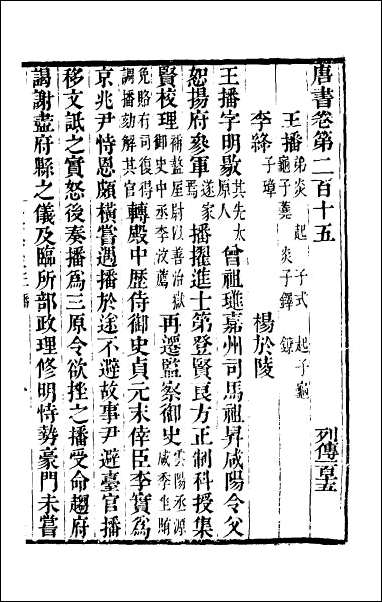 唐書卷第二百十五 列傳一百十五
王播 弟炎 起 子式 起子龜 龜子蕘 炎子鐸 鐐
楊於陵
李絳 子璋
王播字明敭其先太原人曾祖璡嘉州司馬祖昇咸陽令父
恕揚府參軍遂家焉播擢進士第登賢良方正制科授集
賢校理補盩厔尉以善治獄御史中丞李汶薦再遷監察御史雲陽丞源咸季坐賄
免賂有司復得調播劾解其官轉殿中歷侍御史貞元末倖臣李實為
京兆尹恃恩頗橫嘗遇播於途不避故事尹避臺官播
移文詆之實怒後奏播為三原令欲挫之播受命趨府
謁謝盡府縣之儀及臨所部政理修明恃勢豪門未嘗